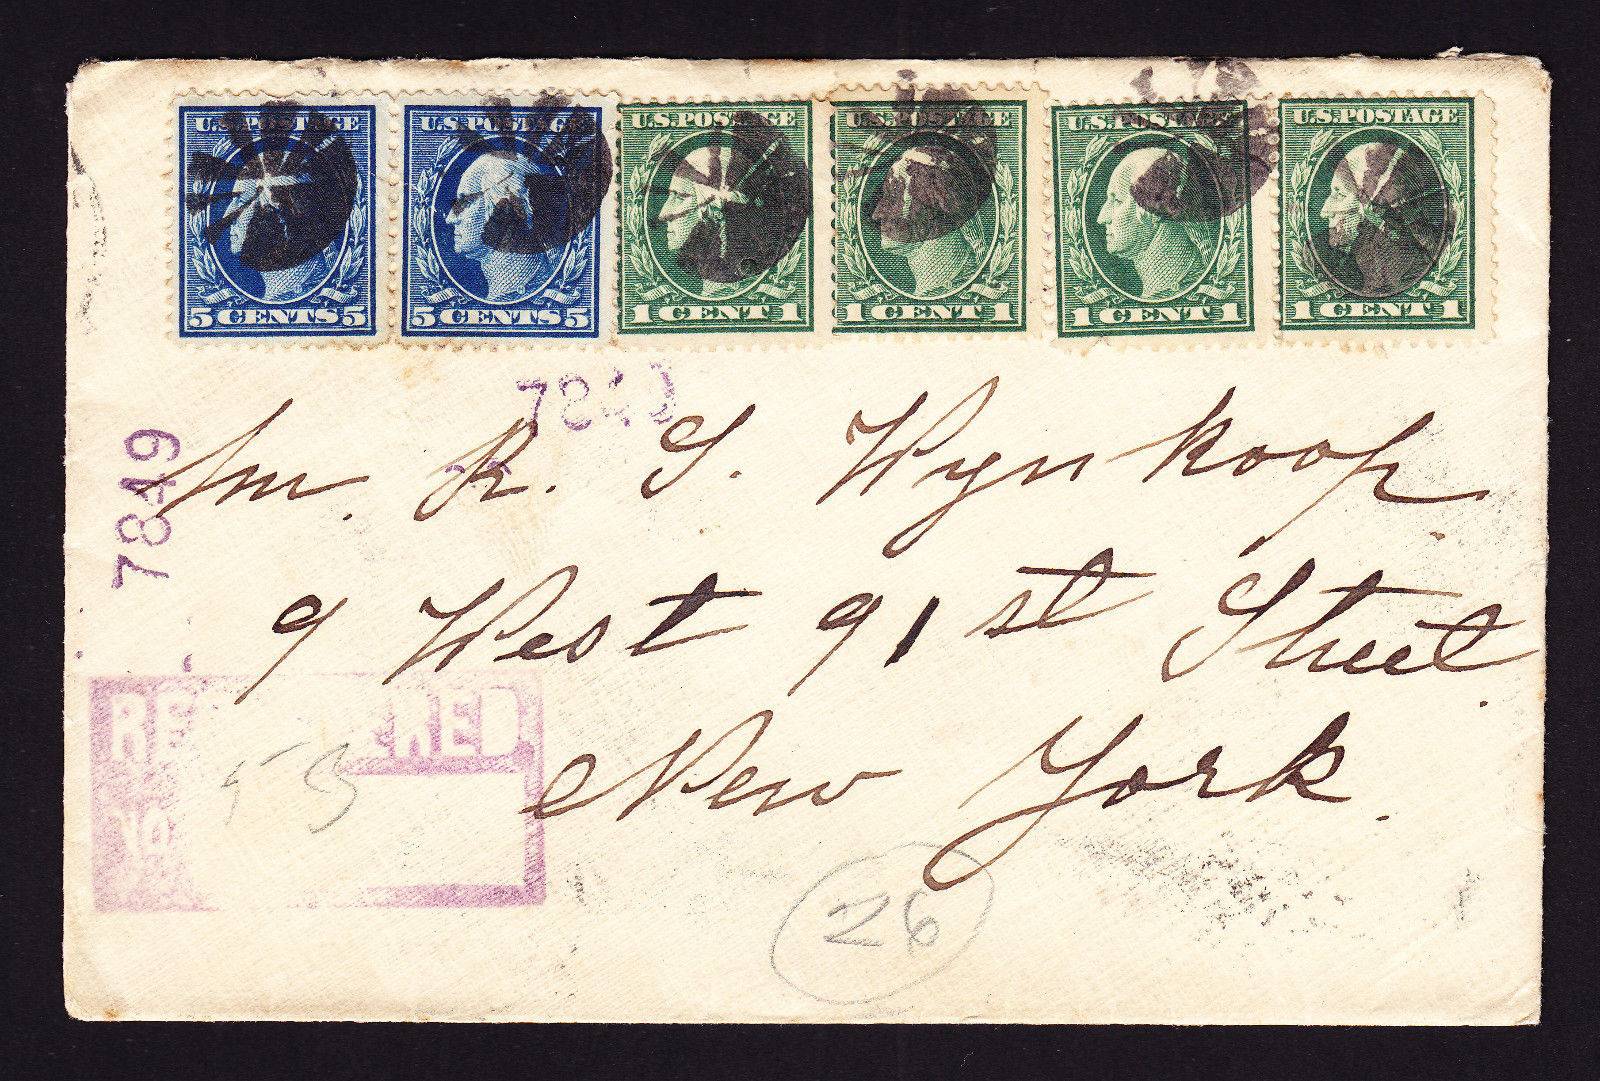 U.S. POSTAGE U.S. POSTAGE U.S. POSTAGE U.S. POSTAGE U.S. POSTAGE U.S. POSTAGE
5 CENTS 5 5 CENTS 5 1 CENT 1 1 CENT 1 1 CENT 1 1 CENT 1
7849
7849
R. S. Wynkoop.
9 West 91st Street.
New York.
REGISTERED
No.
53
26